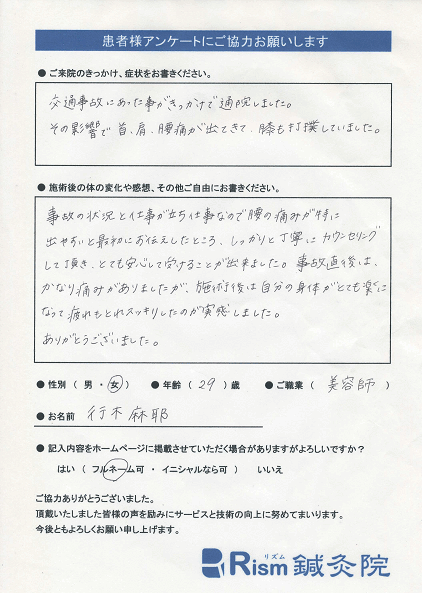 患者様アンケートにご協力お願いします
● ご来院のきっかけ、症状をお書きください。
交通事故にあった事がきっかけで通院しました。
その影響で首、肩、腰痛が出てきて、膝も打撲していました。
● 施術後の体の変化や感想、その他ご自由にお書きください。
事故の状況と仕事が立ち仕事なので腰の痛みが特に
出やすいと最初にお伝えしたところ、しっかりと丁寧にカウンセリング
して頂き、とても安心して受けることが出来ました。事故直後は、
かなり痛みがありましたが、施術後は自分の身体がとても楽に
なって疲れもとれスッキリしたのが実感しました。
ありがとうございました。
● 性別（ 男 ・ 女 ） ● 年齢（ 29 ）歳 ● ご職業（ 美容師 ）
● お名前 行木 麻耶
● 記入内容をホームページに掲載させていただく場合がありますがよろしいですか？
はい （ フルネーム可 ・ イニシャルなら可 ） いいえ
ご協力ありがとうございました。
頂戴いたしました皆様の声を励みにサービスと技術の向上に努めてまいります。
今後ともよろしくお願い申し上げます。
リズム
Rism 鍼灸院